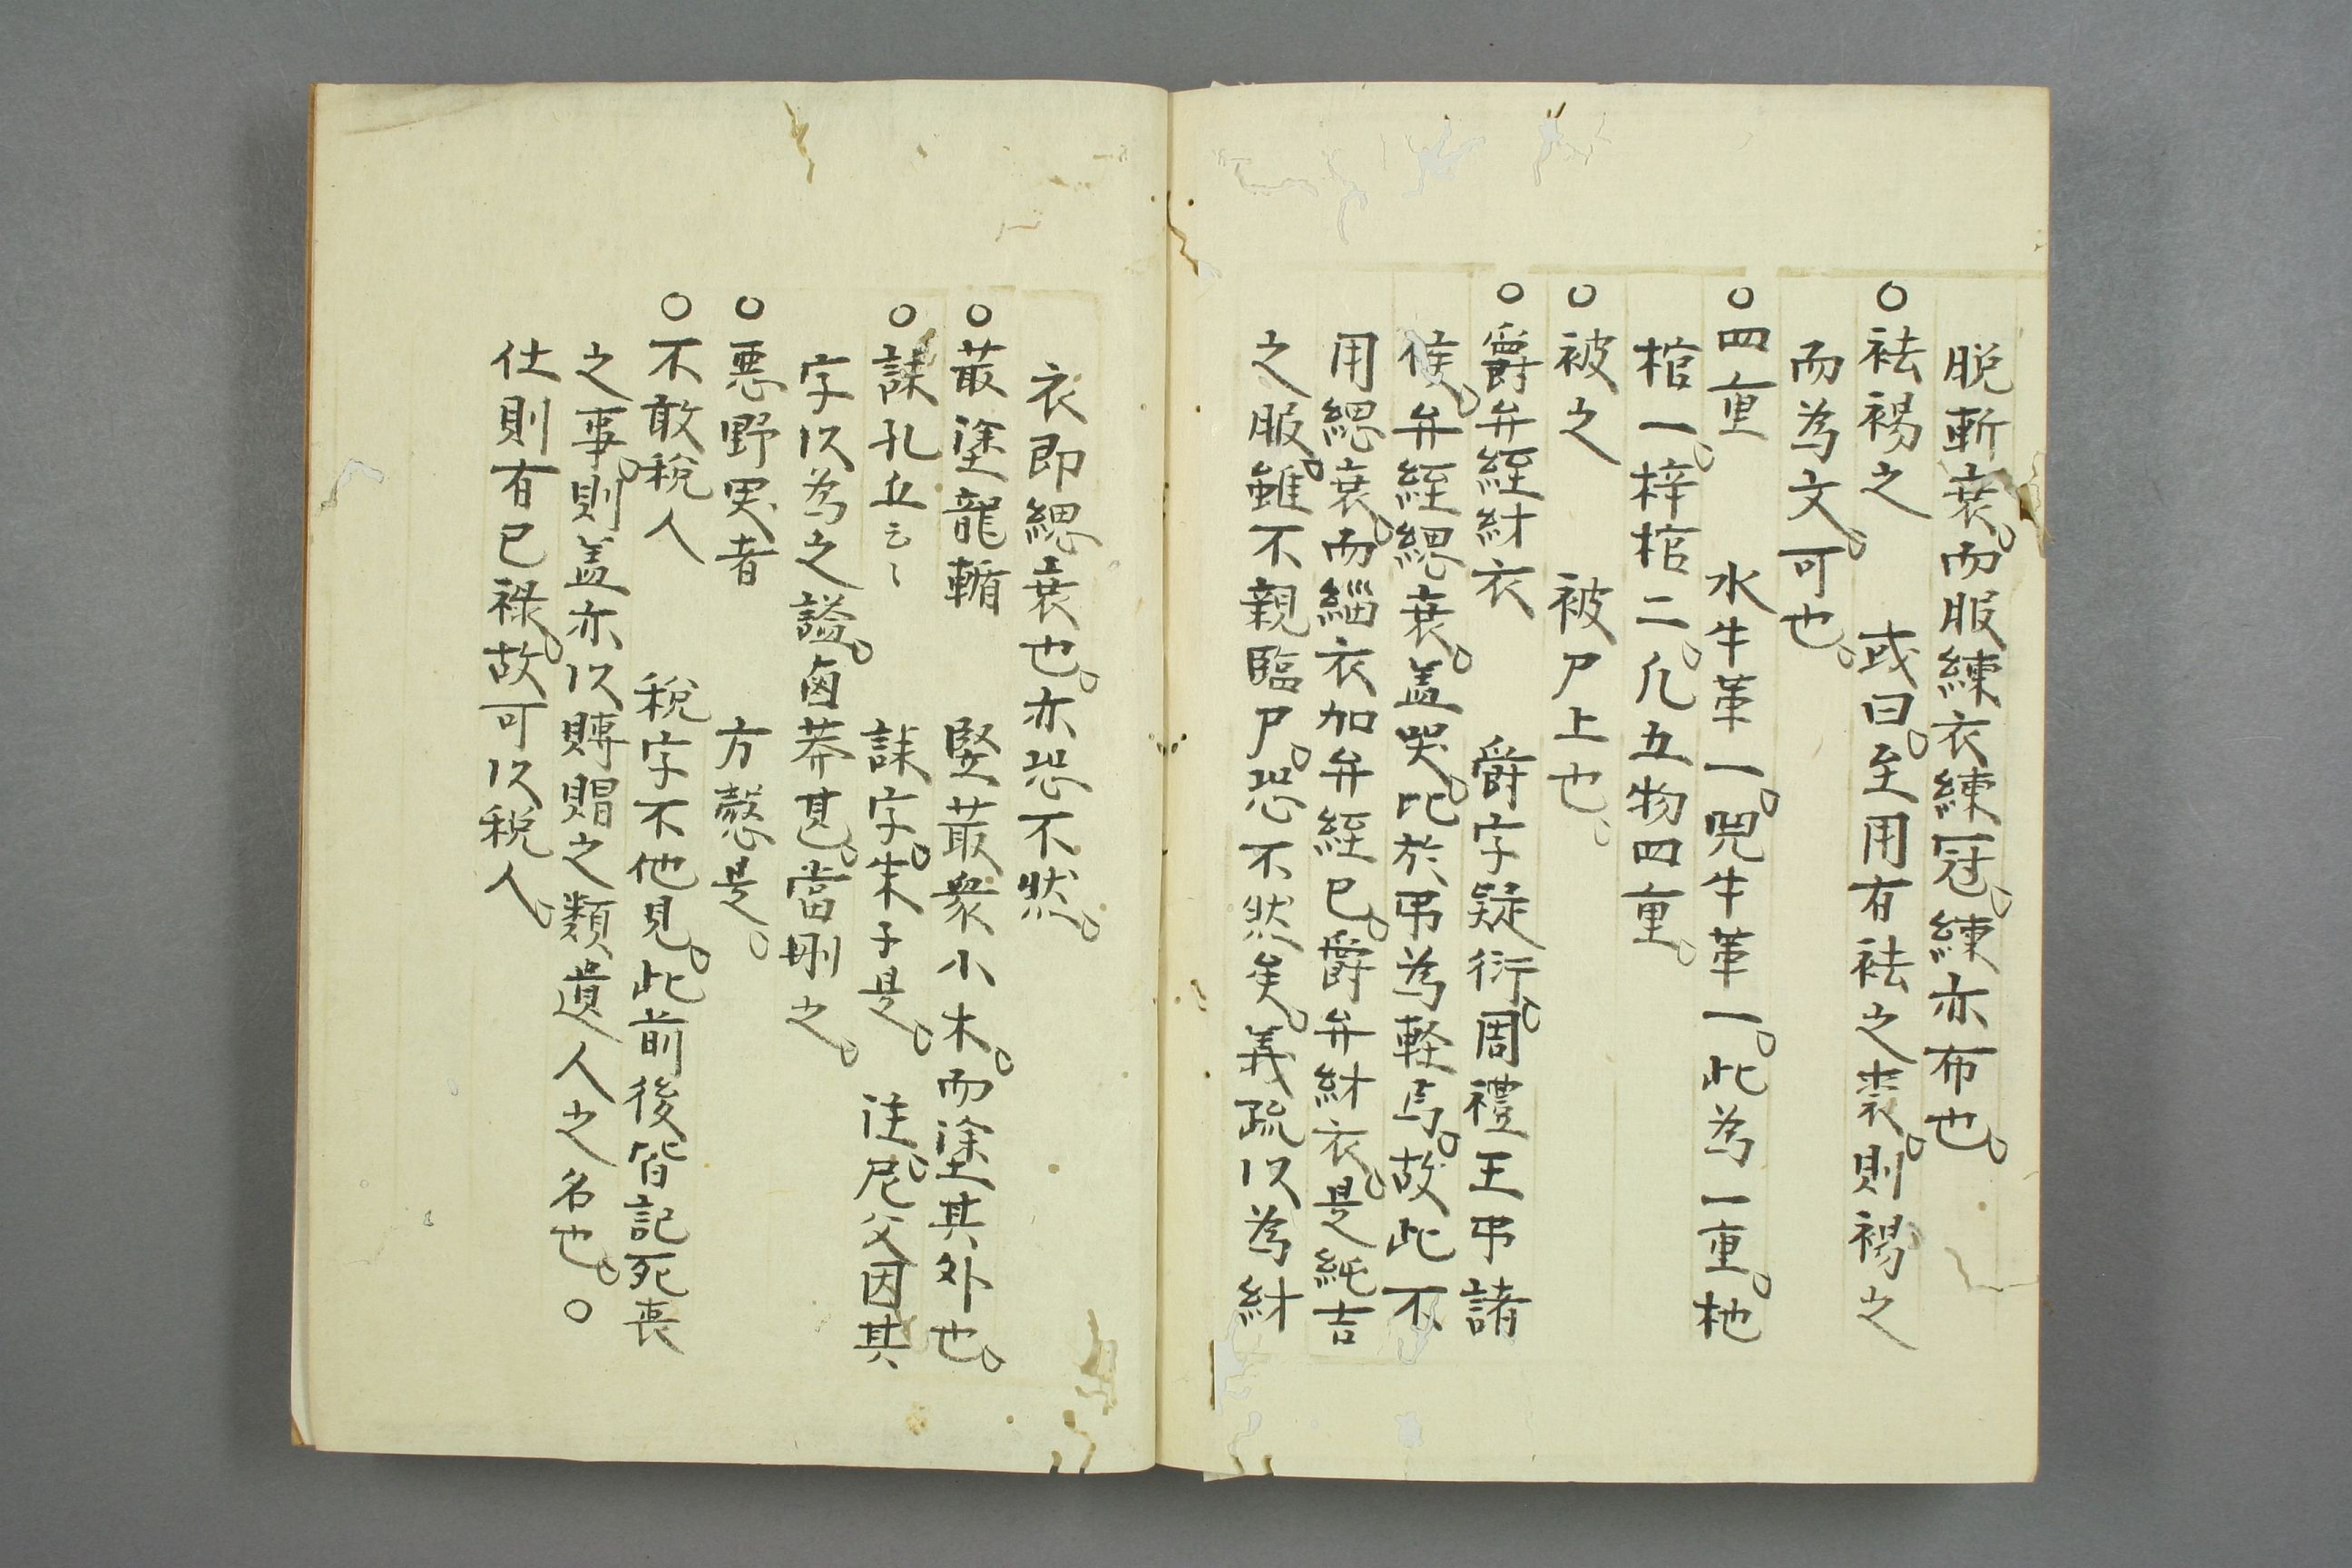 脱斬衰。而服練衣練冠。練亦布也。
○袪裼之　或曰。至用有袪之裘。則裼之
而為文。可也。
○四重　水牛革一。兕牛革一。此為一重。杝
棺一。梓棺二。凡五物四重。
○被之　被尸上也。
○爵弁絰紂衣　爵字疑衍。周禮王弔諸
侯。弁絰緦衰。盖哭。比於弔為軽焉。故此不
用緦衰。而緇衣加弁絰已。爵弁紂衣。是純吉
之服。雖不親臨尸。恐不然矣。義疏以為紂
衣即緦衰也。亦恐不然。
○菆塗龍輴　堅菆衆小木。而塗其外也。
○誄孔丘云々　誄字。朱子是。　注。尼父因其
字以為之謚。鹵莽甚。當刪之。
○悪野哭者　方愨是。
○不敢税人　税字不他見。此前後皆記死丧
之事。則盖亦以賻賵之類遺人之名也。○
仕則有已禄。故可以税人。